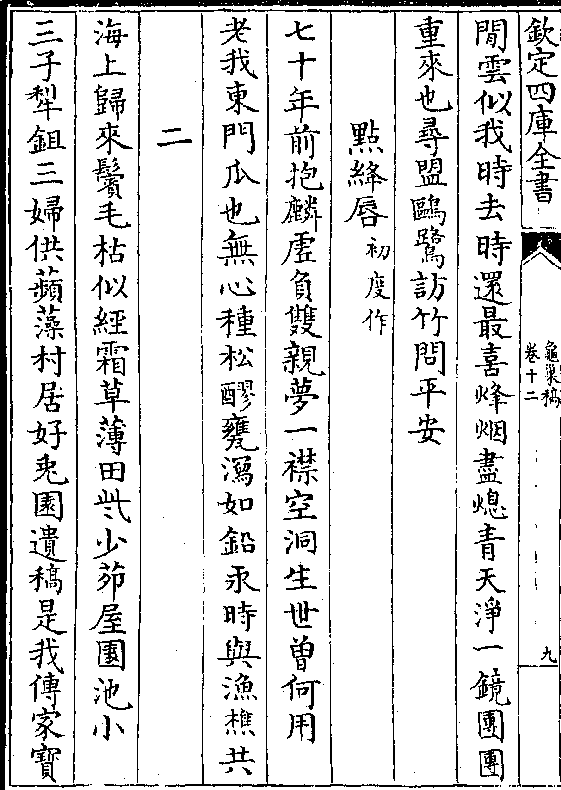 欽定四庫全書
龜巢稿
卷十二
九
閒雲似我時去時還最喜烽烟盡熄青天淨一鏡團團
重來也尋盟鷗鷺訪竹問平安
點絳唇初度作
七十年前抱麟虛負雙親夢一襟空洞生世曾何用
老我東門瓜也無心種松醪甕瀉如鉛汞時與漁樵共
二
海上歸來鬢毛枯似經霜草薄田些少茆屋園池小
三子犁鉏三婦供蘋藻村居好兎園遺稿是我傳家寶